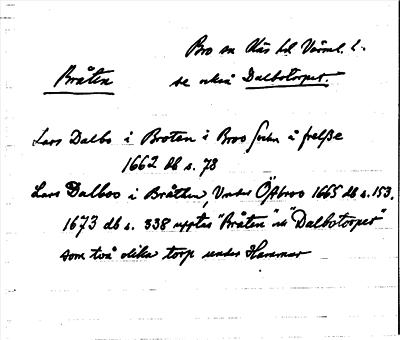 Bro sn Näs hd Värml. l.
Bråten
se också Dalbotorpet.
Lars Dalbo i Broten i Broo Sochn å frelsse
1662 db s. 78
Lars Dalboo i Bråthen, Under Öfbroo 1665 db s. 153.
1673 db s. 338 upptas "Bråten" ock "Dalbotorpet"
som två olika torp under Hammar